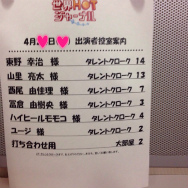 世界HOT
ジャーナル
4月 日 出演者控室案内
東野 幸治 様 タレントクローク 14
山里 亮太 様 タレントクローク 13
西尾 由佳理 様 タレントクローク 7
冨倉 由樹央 様 タレントクローク 3
ハイヒールモモコ 様 タレントクローク 4
ユージ 様 タレントクローク 2
打ち合わせ用 大部屋 2